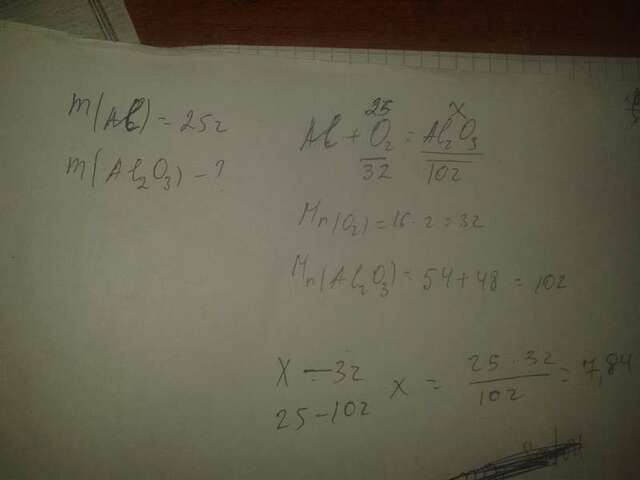 m(Al) = 25г
m(Al₂O₃) - ?
25 x
Al + O₂ = Al₂O₃
32 102
Mr(O₂) = 16·2 = 32
Mr(Al₂O₃) = 54 + 48 = 102
x - 32
25 - 102
x = 25·32 / 102 = 7,84